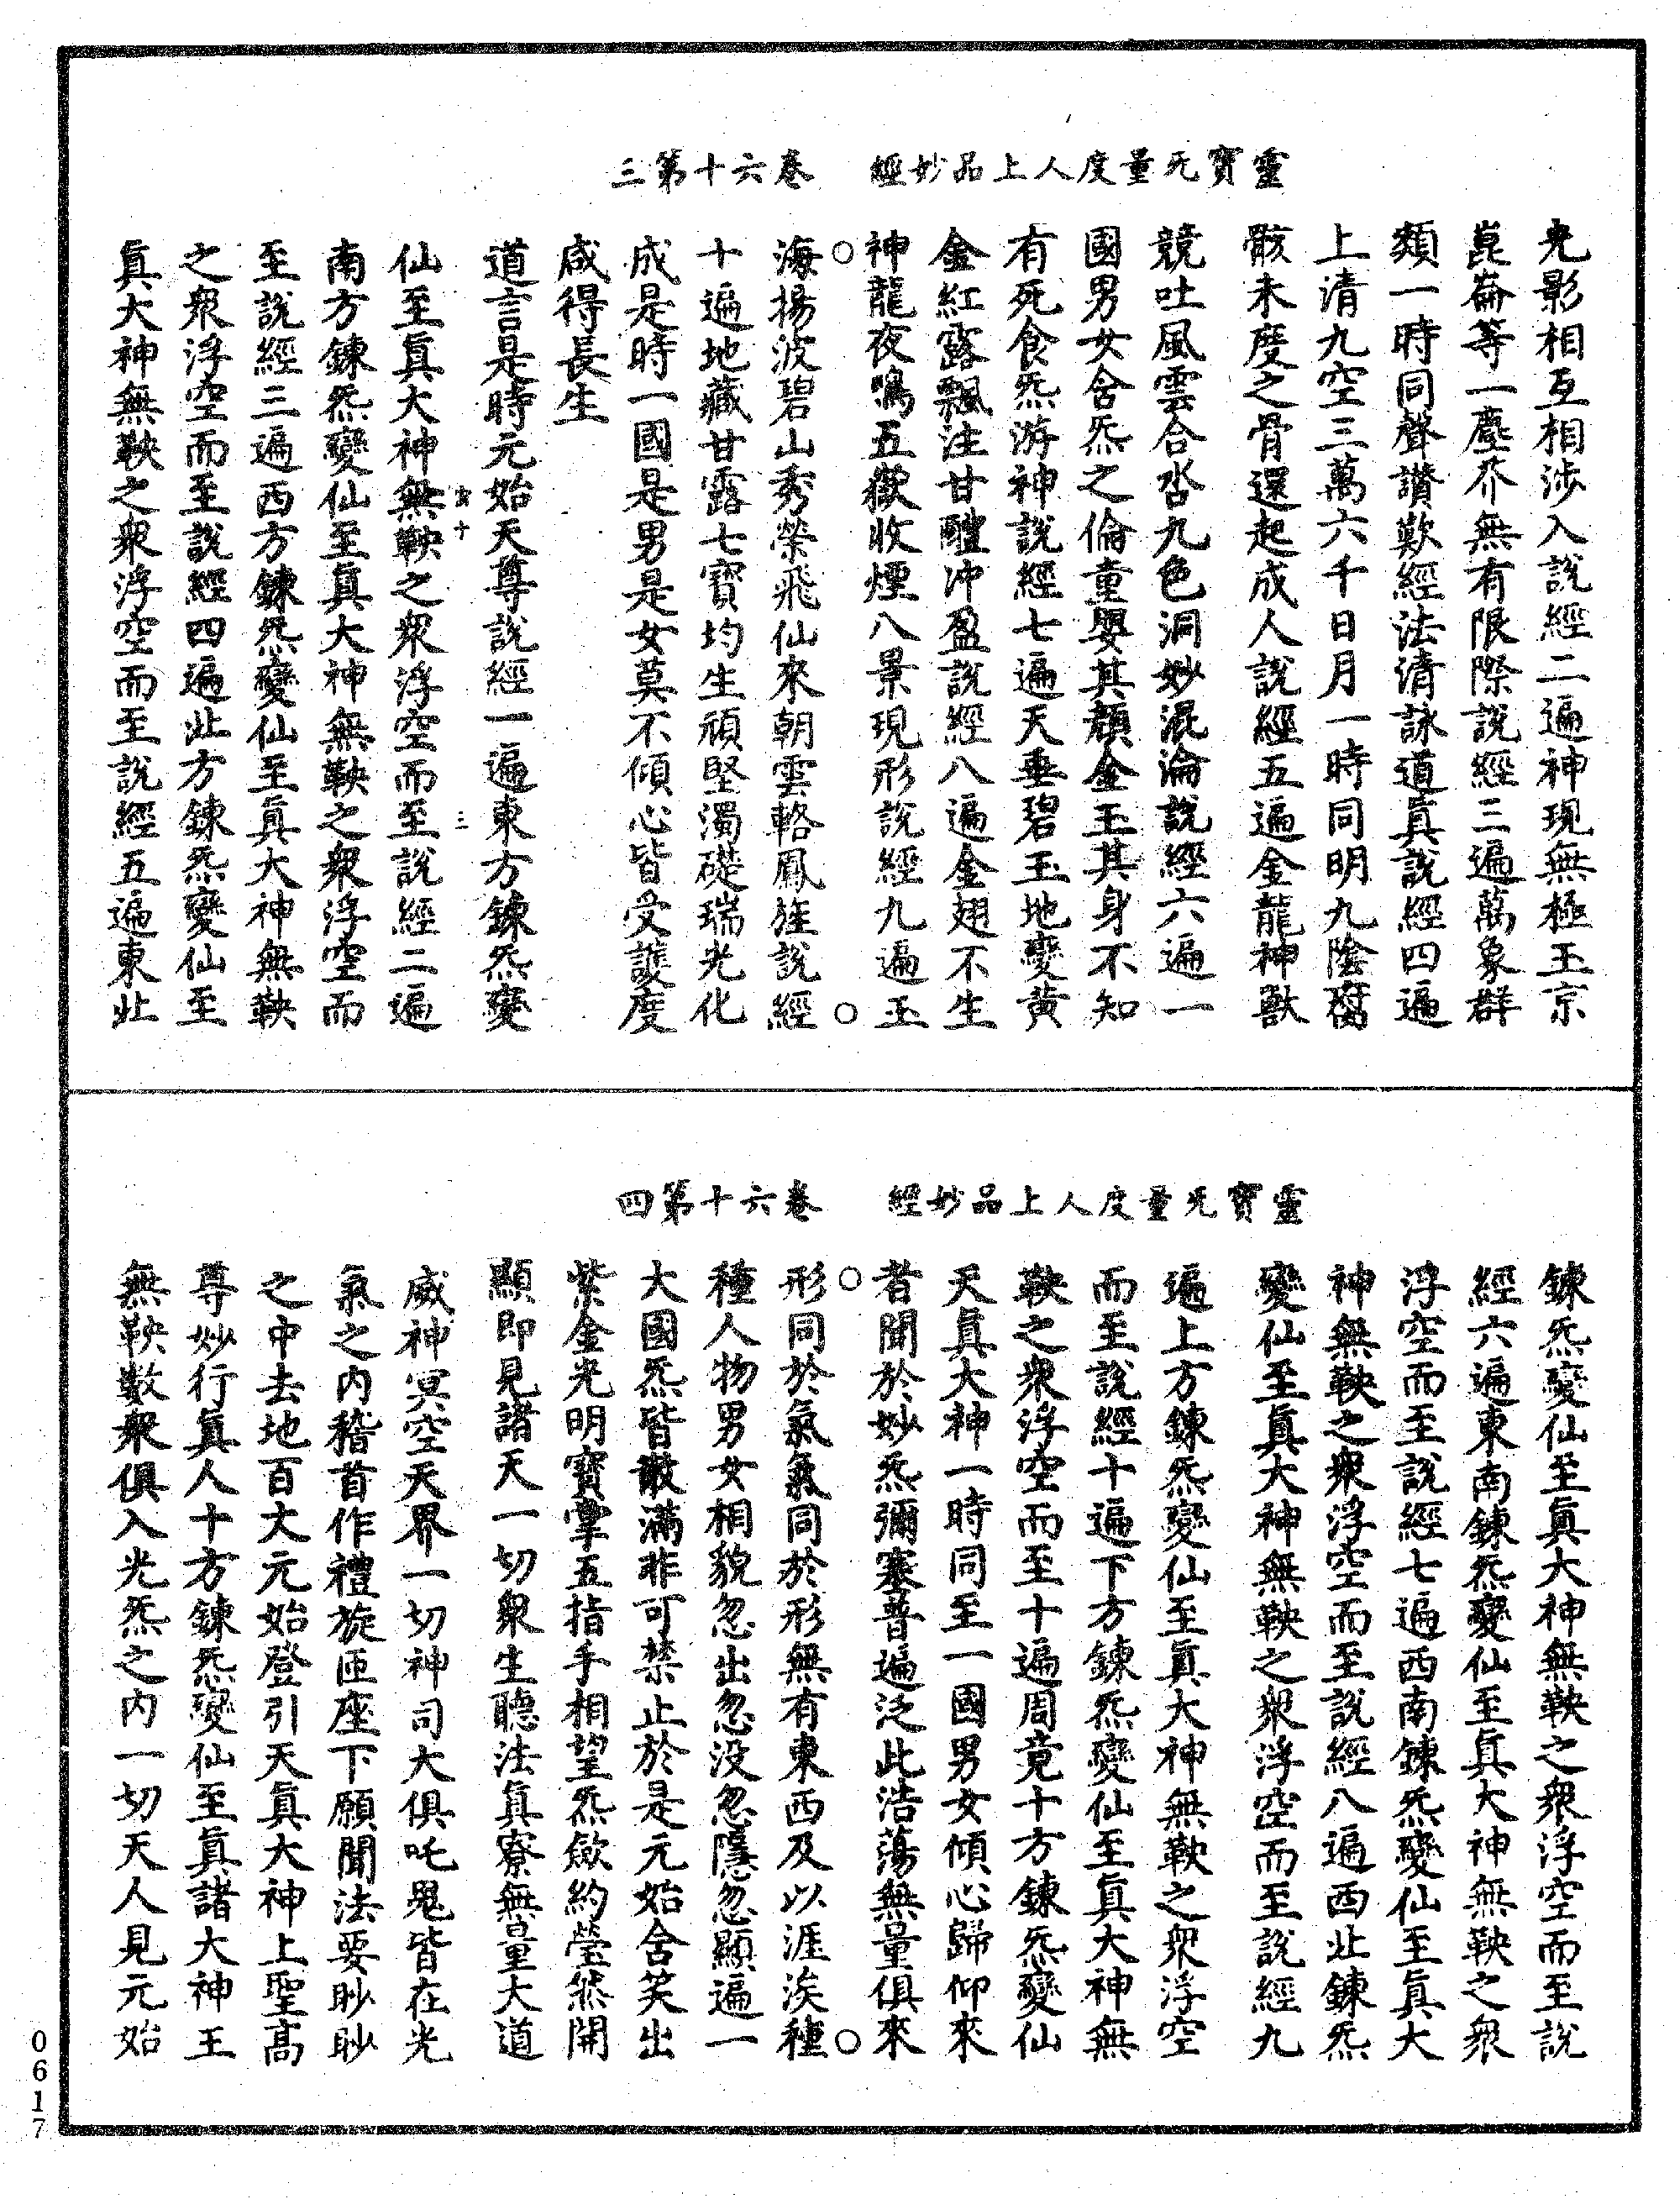 靈寶旡量度人上品妙經　卷六十第三
光影相互相涉入說經二遍神現無極玉京
崑崙等一塵芥無有限際說經三遍萬象群
類一時同聲讃歎經法清詠道真說經四遍
上清九空三萬六千日月一時同明九陰腐
骸未度之骨還起成人說經五遍金龍神獸
競吐風雲合沓九色洞妙混淪說經六遍一
國男女含炁之倫童嬰其顏金玉其身不知
有死食炁游神說經七遍天垂碧玉地變黃
金紅露飄注甘醴冲盈說經八遍金翅不生
神龍夜鳴五嶽收煙八景現形說經九遍玉
海揚波碧山秀榮飛仙來朝雲輅鳳旌說經
十遍地藏甘露七寶均生頑堅濁礎瑞光化
成是時一國是男是女莫不傾心皆受護度
咸得長生
道言是時元始天尊說經一遍東方鍊炁變
仙至真大神無鞅之衆浮空而至說經二遍
南方鍊炁變仙至真大神無鞅之衆浮空而
至說經三遍西方鍊炁變仙至真大神無鞅
之衆浮空而至說經四遍北方鍊炁變仙至
真大神無鞅之衆浮空而至說經五遍東北
靈寶旡量度人上品妙經　卷六十第四
鍊炁變仙至真大神無鞅之衆浮空而至說
經六遍東南鍊炁變仙至真大神無鞅之衆
浮空而至說經七遍西南鍊炁變仙至真大
神無鞅之衆浮空而至說經八遍西北鍊炁
變仙至真大神無鞅之衆浮空而至說經九
遍上方鍊炁變仙至真大神無鞅之衆浮空
而至說經十遍下方鍊炁變仙至真大神無
鞅之衆浮空而至十遍周竟十方鍊炁變仙
天真大神一時同至一國男女傾心歸仰來
者聞於妙炁彌塞普遍泛此浩蕩無量俱來
形同於氣氣同於形無有東西及以涯涘種
種人物男女相貌忽出忽没忽隱忽顯遍一
大國炁皆散滿非可禁止於是元始含笑出
紫金光明寶掌五指手相望炁歛約瑩然開
顯即見諸天一切衆生聽法真寮無量大道
威神冥空天界一切神司大俱吒鬼皆在光
氣之内稽首作禮旋匝座下願聞法要眇眇
之中去地百丈元始登引天真大神上聖高
尊妙行真人十方鍊炁變仙至真諸大神王
無鞅數衆俱入光炁之内一切天人見元始
0617